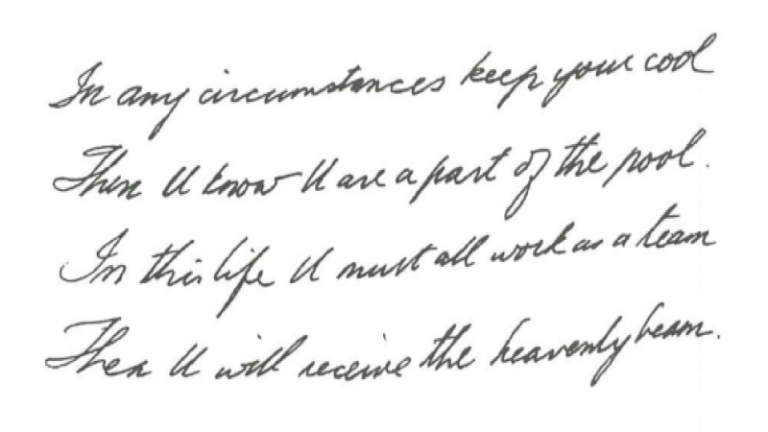 In any circumstances keep your cool
Then U know U are a part of the pool.
In this life U must all work as a team
Then U will receive the heavenly beam.